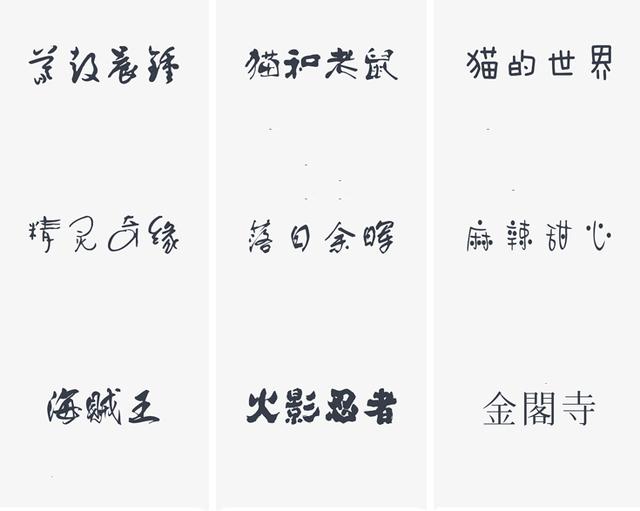 暮鼓晨鍾
猫和老鼠
猫的世界
精灵奇缘
落日余晖
麻辣甜心
海贼王
火影忍者
金閣寺